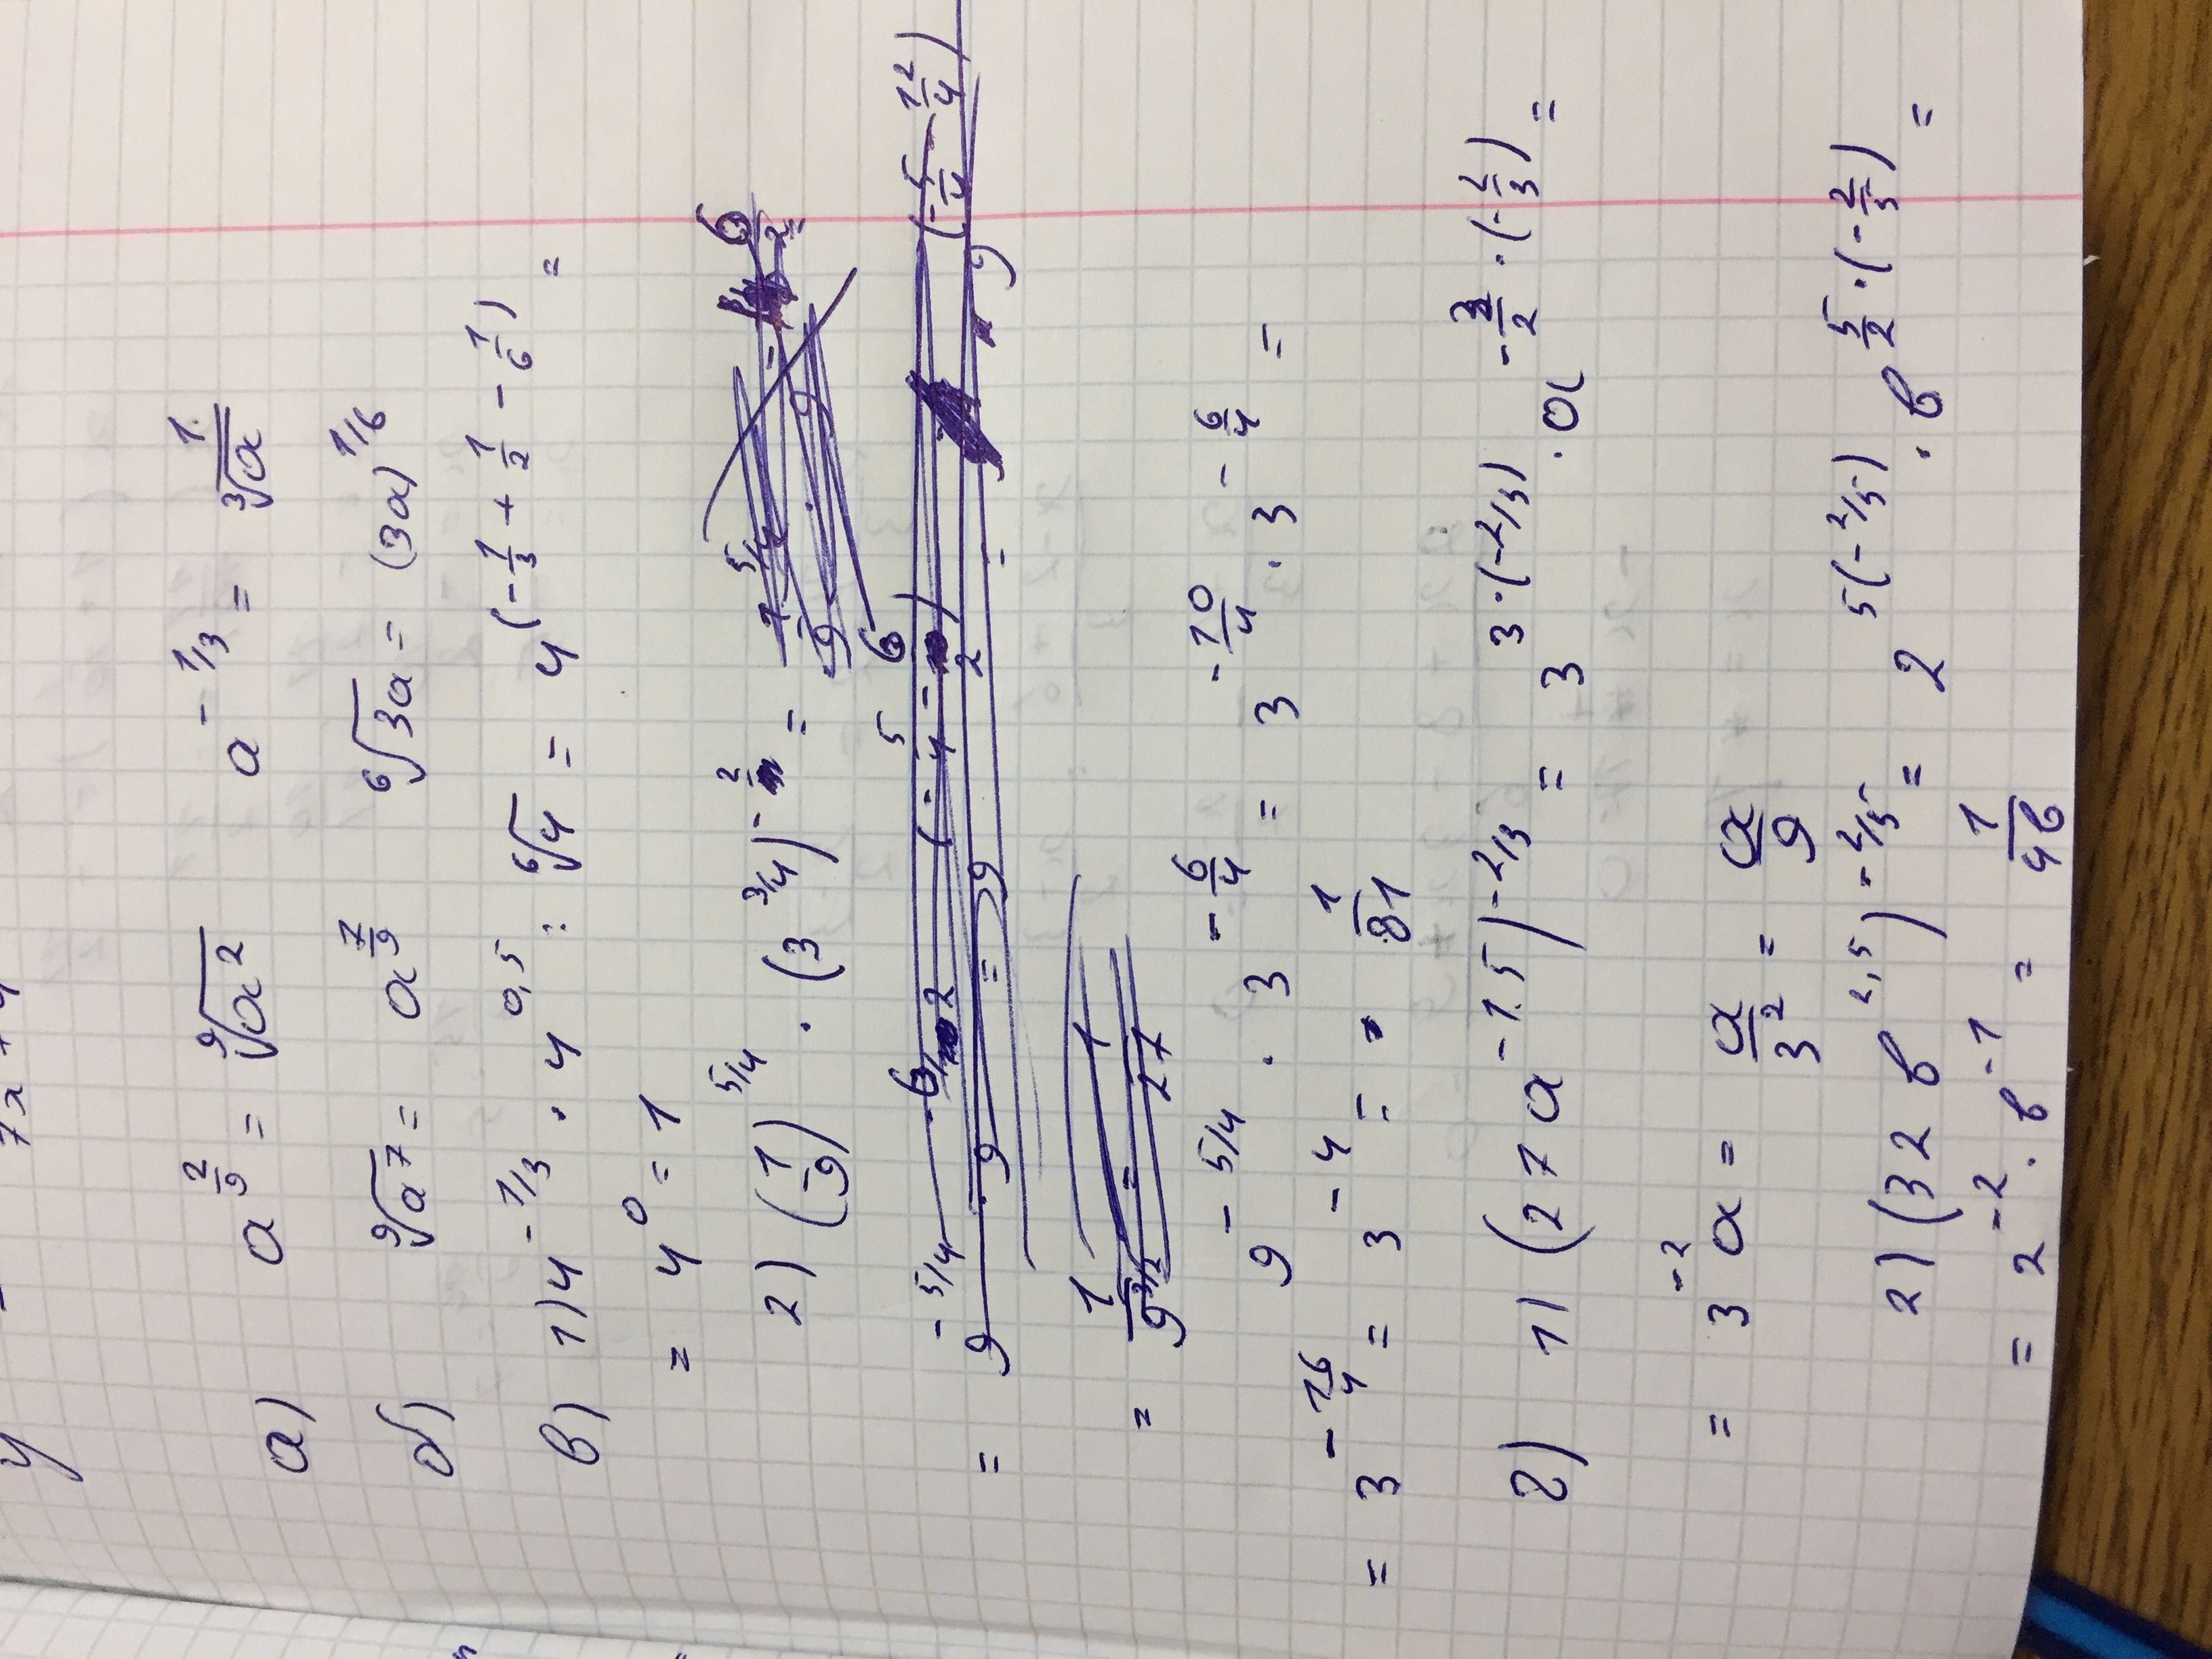 a) a^(2/9) = ⁹√a² a^(-1/3) = 1/³√a
б) ⁹√a⁷ = a^(7/9) ⁶√3a = (3a)^(1/6)
в) 1) 4^(-1/3) · 4^(0,5) : ⁶√4 = 4^(-1/3 + 1/2 - 1/6) =
= 4⁰ = 1
2) (1/9)^(5/4) · (3^(3/4))^(-2) =
=
=
9^(-5/4) · 3^(-6/4) = 3^(-10/4) · 3^(-6/4) =
= 3^(-16/4) = 3^(-4) = = 1/81
г) 1) (27a^(-1.5))^(-2/3) = 3^(3·(-2/3)) · a^(-3/2 · (-2/3)) =
= 3^(-2) a = a/3² = a/9
2) (32 в^(2,5))^(-2/5) = 2^(5(-2/5)) · в^(5/2 · (-2/5)) =
= 2^(-2) · в^(-1) = 1/4в